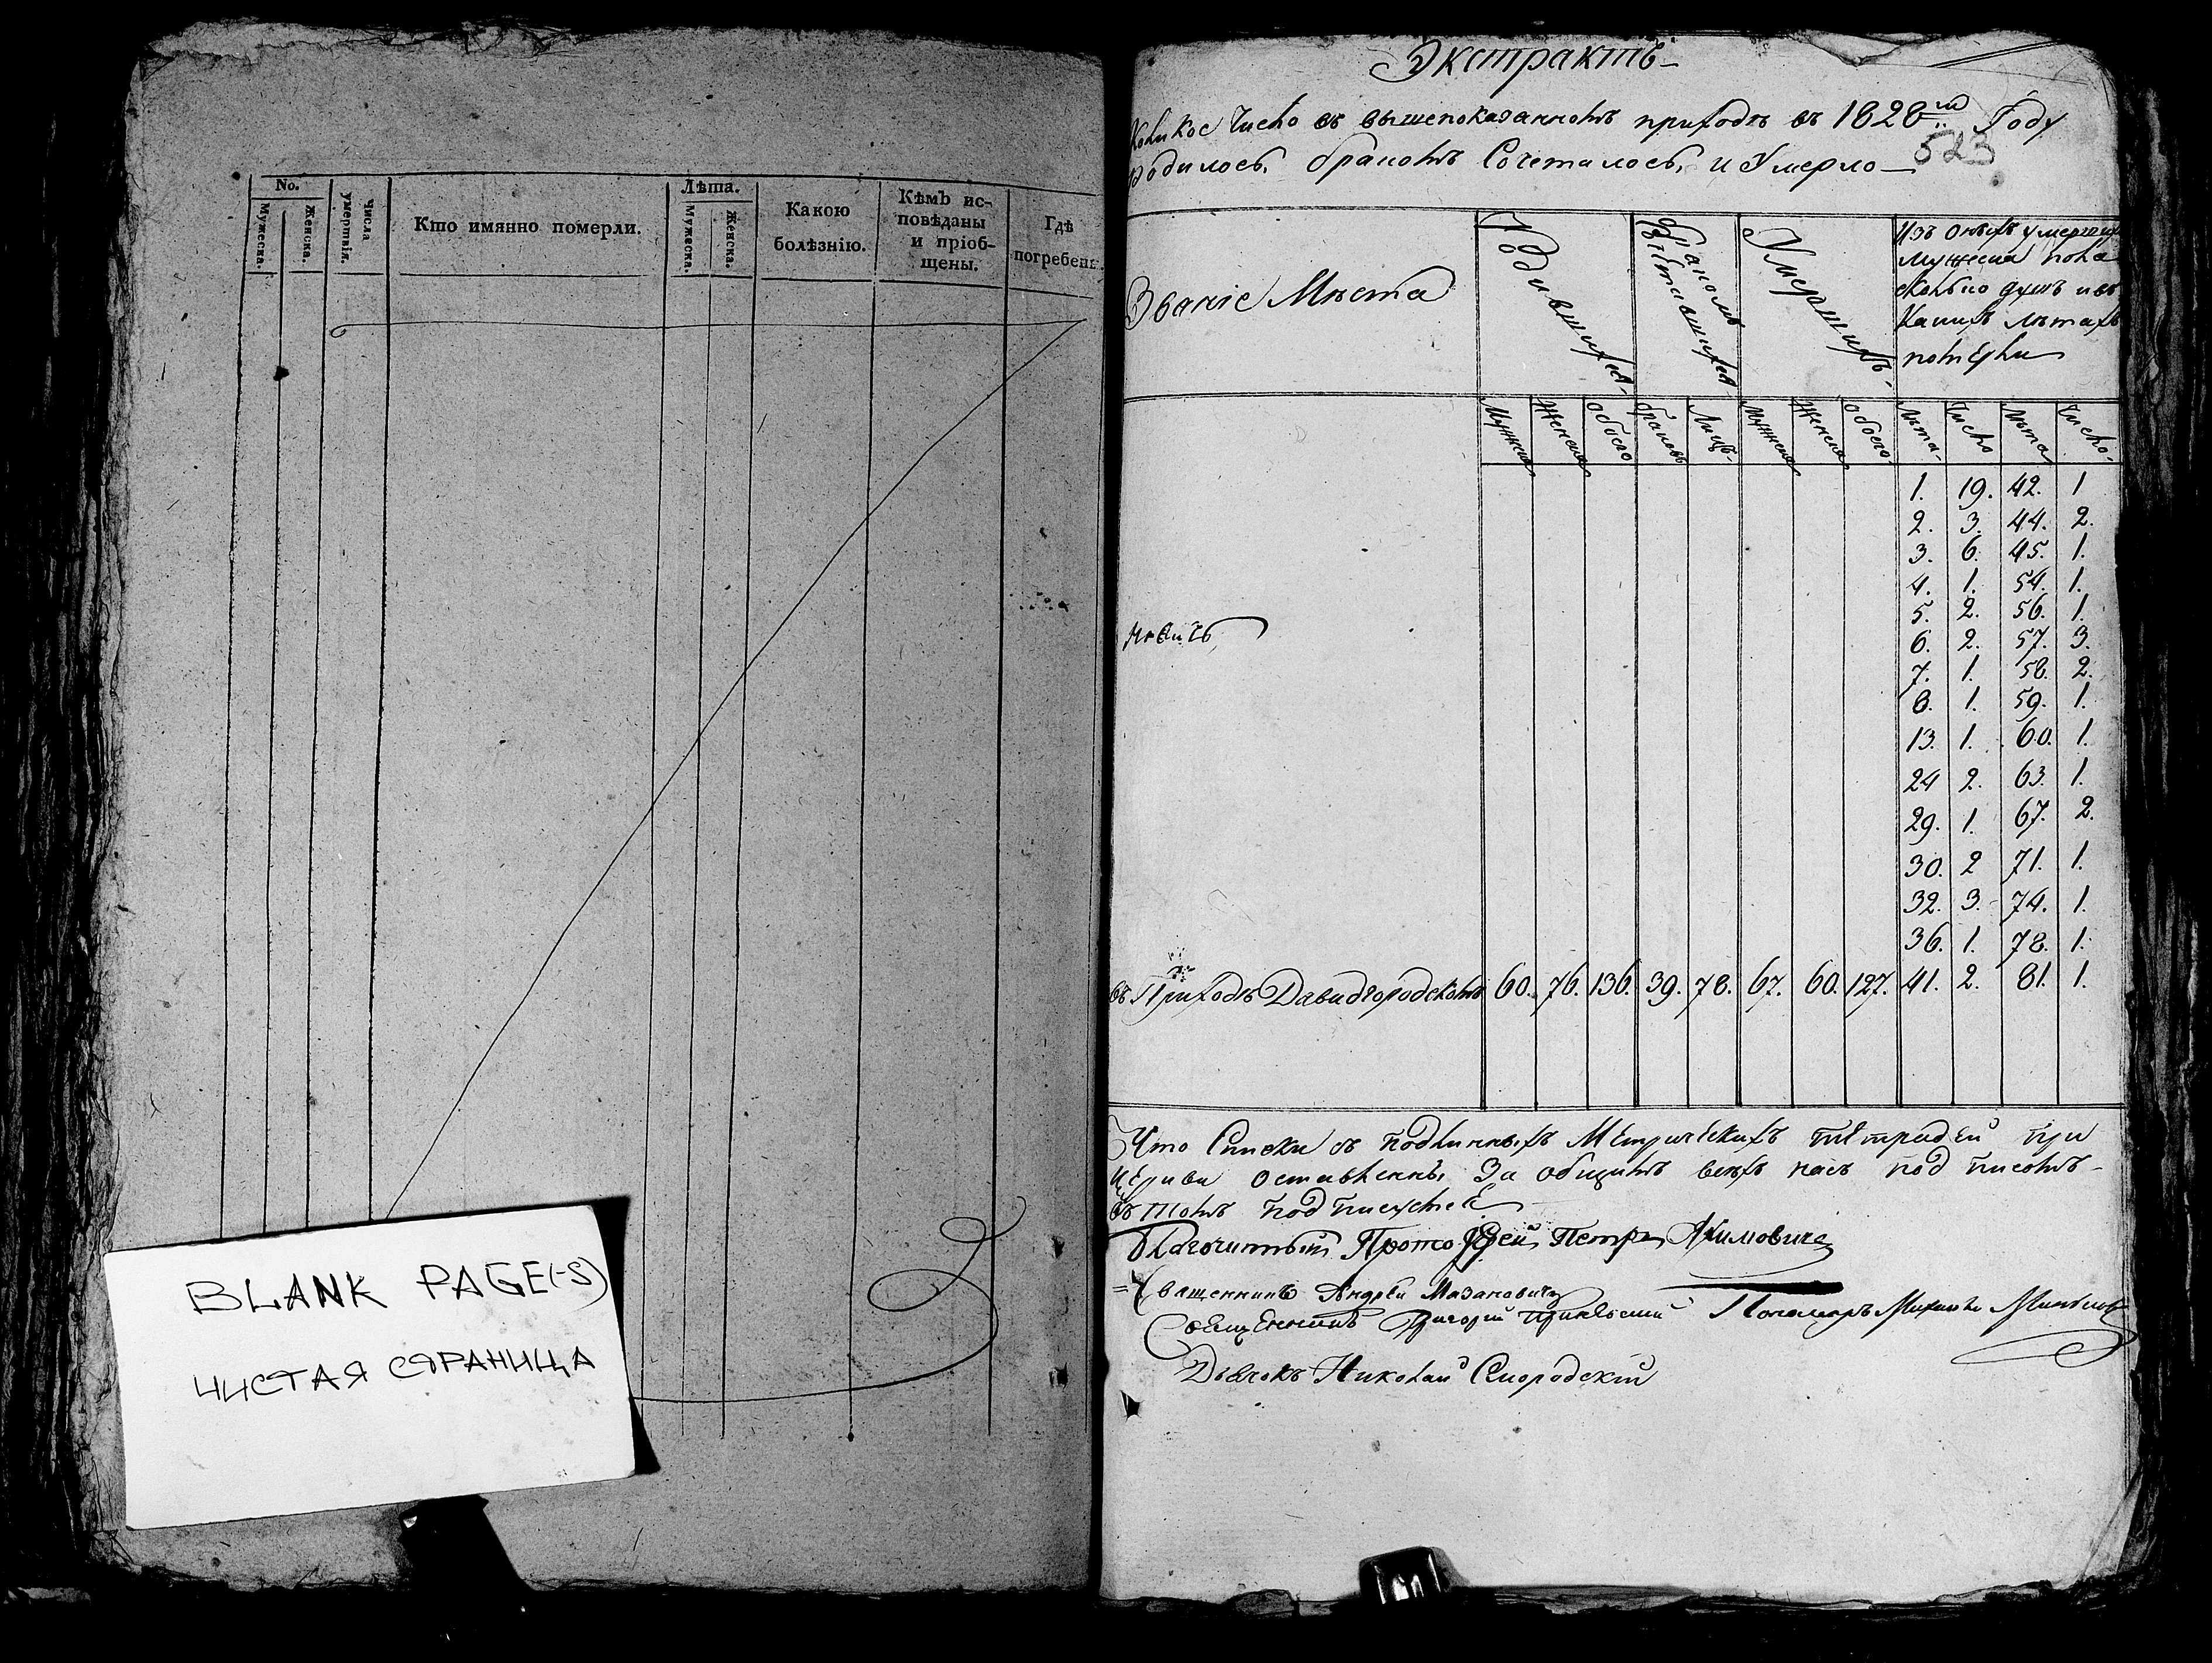 No.
Мужеска.
Женска.
числа умертвія.
Кто имянно померли.
Лѣта.
Мужеска.
Женска.
Какою
болѣзнію.
Кѣмъ ис-
повѣданы
и пріоб-
щены.
Гдѣ
погребены.
BLANK PAGE(-S)
ЧИСТАЯ СТРАНИЦА
Экстрактъ
Коликое число въ вышепоказанномъ приходѣ въ 1828мъ Году
родилось, бракомъ Сочеталось, и Умерло
523
Званіе Мѣста
Родившихся
Бракомъ
Умершихъ
Изъ оныхъ умершихъ
мужеска пола
сколько душъ и въ
какихъ лѣтахъ
померли
Мужеска Женска обоего браковъ Лицъ Мужеска Женска обоего Лѣта Число Лѣта Число
1. 19. 42. 1
2. 3. 44. 2.
3. 6. 45. 1.
4. 1. 54. 1.
5. 2. 56. 1.
6. 2. 57. 3.
7. 1. 58. 2.
8. 1. 59. 1.
13. 1. 60. 1.
24 2. 63. 1.
29. 1. 67. 2.
30. 2 71. 1.
32. 3. 74. 1.
36. 1. 78. 1.
въ Приходѣ Давидгородскомъ 60. 76. 136. 39. 78. 67. 60. 127. 41. 2. 81. 1.
Что Списки съ подлинныхъ Метрическихъ тетрадей при
церкви оставленны За общимъ всѣхъ насъ под писомъ
въ томъ подписуемсе
Благочинный Протоіерей Петръ Акимовичъ
Священникъ Андрей Мазановичъ
Священникъ Григорій
Пономаръ Михаилъ
Дьячокъ Николай Смородскій